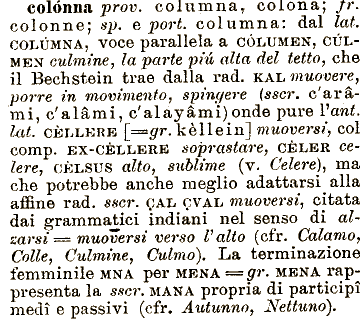 colónna prov. columna, colona; fr.
colonne; sp. e port. columna: dal lat.
COLÚMNA, voce parallela a CÓLUMEN, CÚL-
MEN culmine, la parte piú alta del tetto, che
il Bechstein trae dalla rad. KAL muovere,
porre in movimento, spingere (sscr. c'arâ-
mi, c'alâmi, c'alayâmi) onde pure l'ant.
lat. CÈLLERE [=gr. kèllein] muoversi, col
comp. EX-CÈLLERE soprastare, CÈLER ce-
lere, CÈLSUS alto, sublime (v. Celere), ma
che potrebbe anche meglio adattarsi alla
affine rad. sscr. ÇAL ÇVAL muoversi, citata
dai grammatici indiani nel senso di al-
zarsi = muoversi verso l'alto (cfr. Calamo,
Colle, Culmine, Culmo). La terminazione
femminile MNA per MENA = gr. MENA rap-
presenta la sscr. MANA propria di participî
medî e passivi (cfr. Autunno, Nettuno).